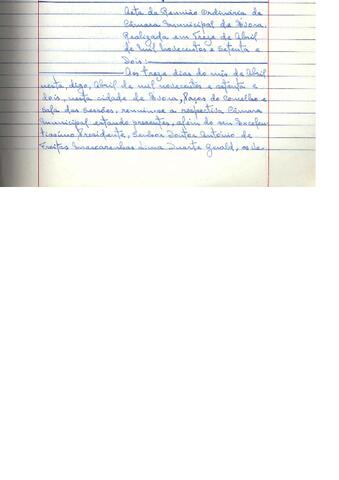 Acta da Reunião Ordinária da
Câmara Municipal de Évora
Realizada em Treze de Abril
de Mil Novecentos e Setenta e
Dois:
Aos treze dias do mês de Abril
nesta, digo, Abril de mil novecentos e setenta e
dois, nesta cidade de Évora, Paços do Concelho e
sala das sessões, reuniu-se a respectiva Câmara
Municipal estando presentes, além do seu Excelen-
tíssimo Presidente, Senhor Doutor António de
Freitas Mascarenhas Lima Duarte Gerald, os Ve-